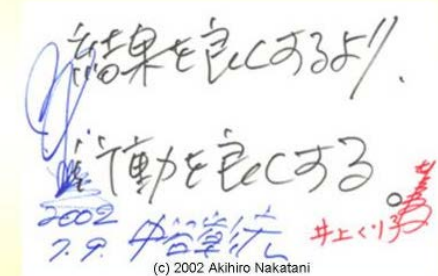 結果を良くするより、
行動を良くする。
2002
7.9. 中谷彰宏
井上くり子
(c) 2002 Akihiro Nakatani